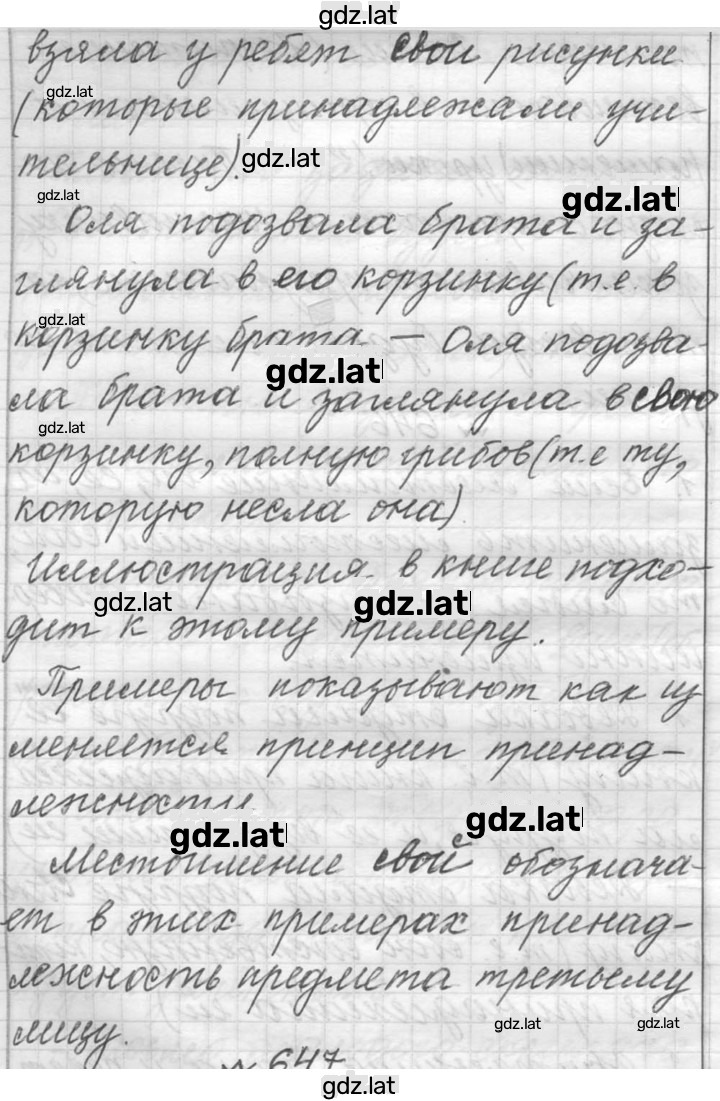 gdz.lat
взяла у ребят свои рисунки
gdz.lat
(которые принадлежали учи-
тельнице). gdz.lat
gdz.lat
gdz.lat
Оля подозвала брата и за-
глянула в его корзинку (т.е. в
gdz.lat
корзинку брата — Оля подозва-
gdz.lat
ла брата и заглянула в свою
gdz.lat
корзинку, полную грибов (т.е ту,
которую несла она)
Иллюстрация в книге подхо-
gdz.lat gdz.lat
дит к этому примеру.
Примеры показывают как из
меняется принцип принад-
лежности
gdz.lat gdz.lat
Местоимение свой обознача-
ет в этих примерах принад-
лежность предмета третьему
лицу. gdz.lat gdz.lat
№ 647
gdz.lat